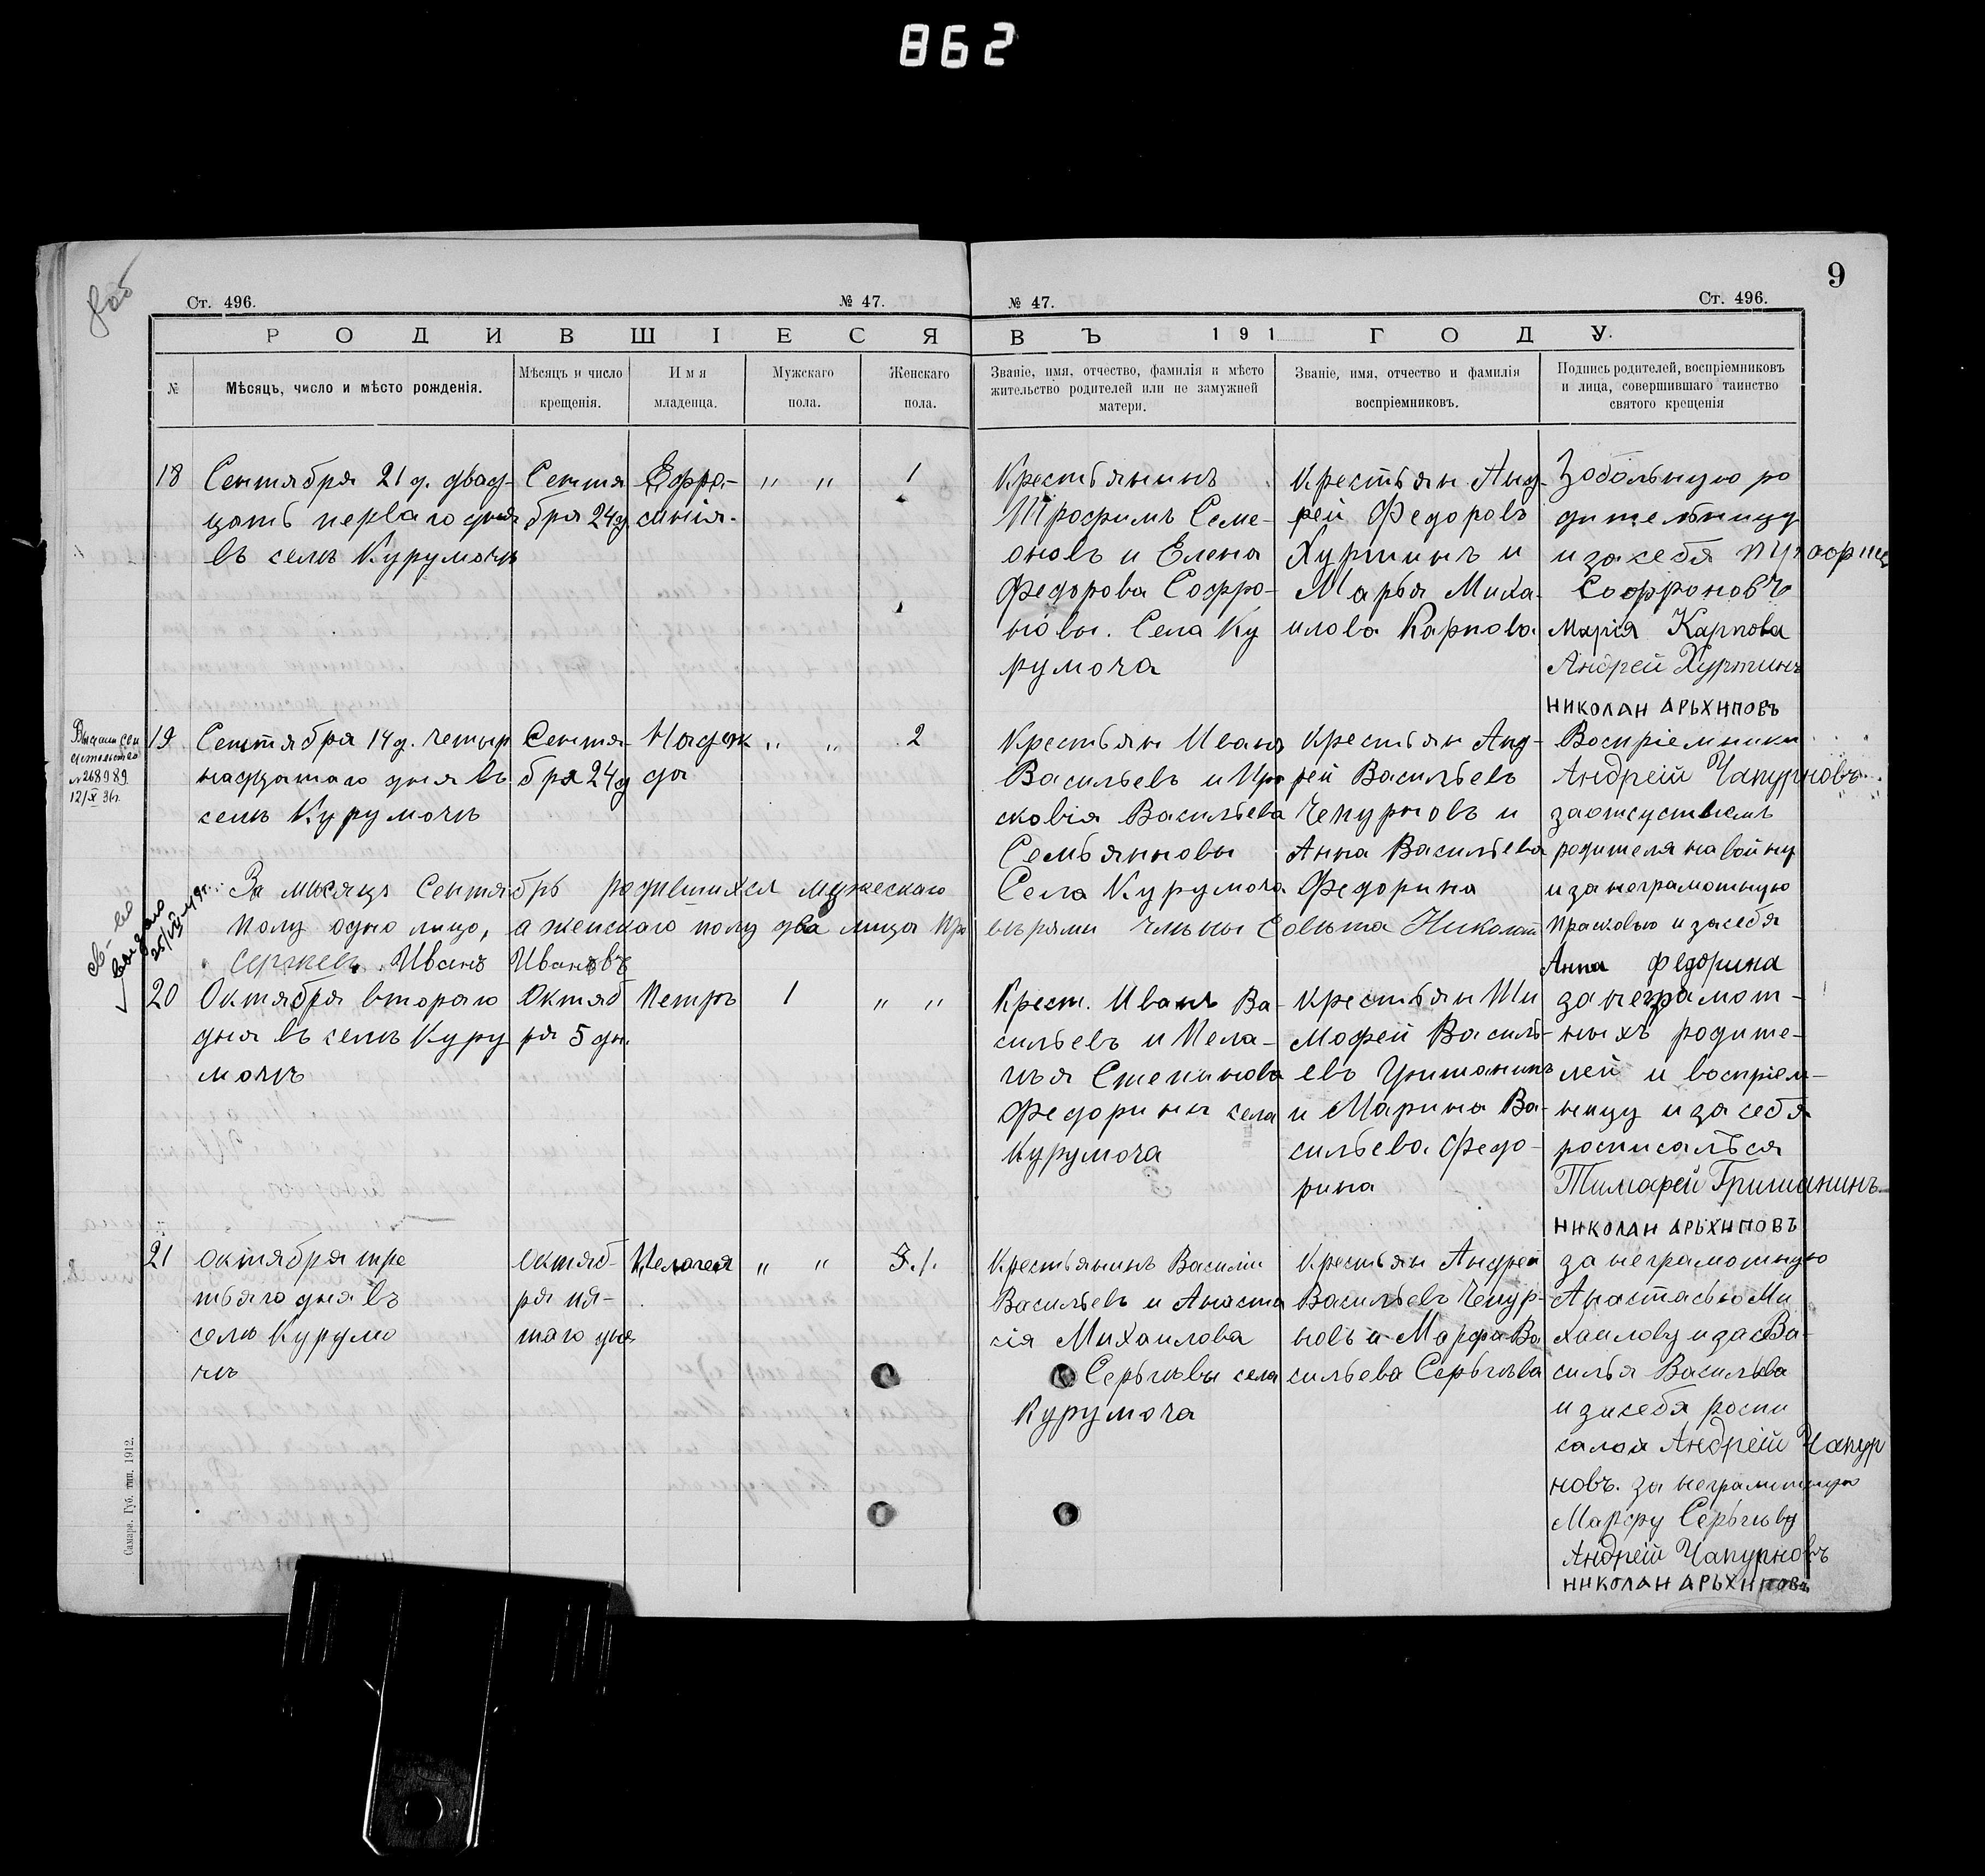 862
9
Ст. 496.
№ 47.
№ 47.
Ст. 496.
РОДИВШІЕСЯ
ВЪ 191 ГОДУ.
№
Мѣсяцъ, число и мѣсто рожденія.
Мѣсяцъ и число
крещенія.
Имя
младенца.
Мужскаго
пола.
Женскаго
пола.
Званіе, имя, отчество, фамилія и мѣсто
жительство родителей или не замужней
матери.
Званіе, имя, отчество и фамилія
воспріемниковъ.
Подпись родителей, воспріемниковъ
и лица, совершившаго таинство
святого крещенія
18
Сентября 21 д. двад-
цать перваго дня
въ селѣ Курумочѣ
Сентя
бря 24 д
Ефро-
синія.
" "
1
Крестьянинъ
Трофимъ Семе-
новъ и Елена
Федорова Софро-
новы. Села Ку
румоча
Крестьян Анд-
рей Федоровъ
Хуртинъ и
Марья Миха-
илова Карпова
Зобольную ро
дительницу
и за себя
Софроновъ
Марія Карпова
Андрей Хуртинъ
НИКОЛАН АРЬХИПОВЪ
№ 268989
12/X 36г.
19
Сентября 14 д. четыр
надцатаго дня въ
селѣ Курумочѣ
Сентя-
бря 24 д
Надеж
да
" "
2
Крестьян Иванъ
Васильевъ и Пра
сковія Васильева
Семьянновы
Села Курумоча
Крестьян Анд-
рей Васильевъ
Чепурновъ и
Анна Васильева
Федорина
Воспріемники
Андрей Чапурновъ
заотсуствіемъ
родителя навойну
и за неграмотную
Прасковью и за себя
Анна Федорина
За мѣсяцъ Сентябрь родившихся мужескаго
полу одно лицо, а женскаго полу два лица Про
вѣряли члены Совѣта Николай
Иванъ Ивановъ
св-во
выдано
20
Октября второго
дня въ селѣ Куру
мочѣ
Октяб
ря 5 дн.
Петръ
1
" "
Крест. Иванъ Ва-
сильевъ и Пела-
гѣя Степанова
Федорины села
Курумоча
Крестьян Ти
мофей Василь-
евъ Гришанинъ
и Марина Ва-
сильева Федо-
рина
за неграмот-
ныхъ родите-
лей и воспріем-
ницу и за себя
росписалься
Тимафей Гришанинъ
НИКОЛАН АРЬХИПОВЪ
21
октября тре
тьяго дня въ
селѣ Курумо
чѣ
октяб-
ря пя-
таго дня
Пелагея
" "
1.
Крестьянинъ Василіи
Васильевъ и Анаста
сія Михаилова
Серьгѣвы села
Курумоча
Крестьян Андрей
Васильевъ Чепур-
новъ и Марфа Ва
сильева Серьгѣва
за неграмотную
Анастасью Ми
хаилову и за Ва-
силья Васильева
и засебя роспи
салси Андрей Чапур
новъ. за неграмотную
Марфу Серьгѣву
Андрей Чапурновъ
НИКОЛАН АРЬХИПОВЪ
Самара. Губ. тип. 1912.